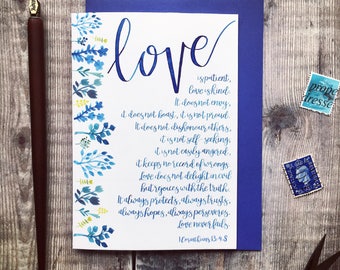 love
is patient,
love is kind.
It does not envy,
it does not boast, it is not proud.
It does not dishonour others,
it is not self-seeking,
it is not easily angered,
it keeps no record of wrongs.
Love does not delight in evil
but rejoices with the truth.
It always protects, always trusts,
always hopes, always perseveres.
Love never fails.
1 Corinthians 13:4-8